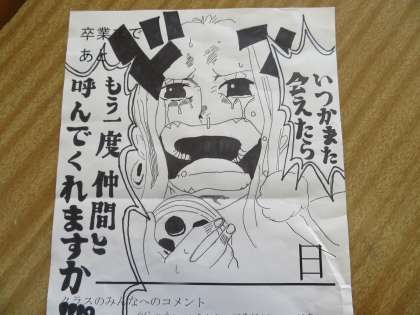 卒業まで
あと
いつかまた
会えたら
もう一度 仲間と
呼んでくれますか
!!!?
日
クラスのみんなへのコメント